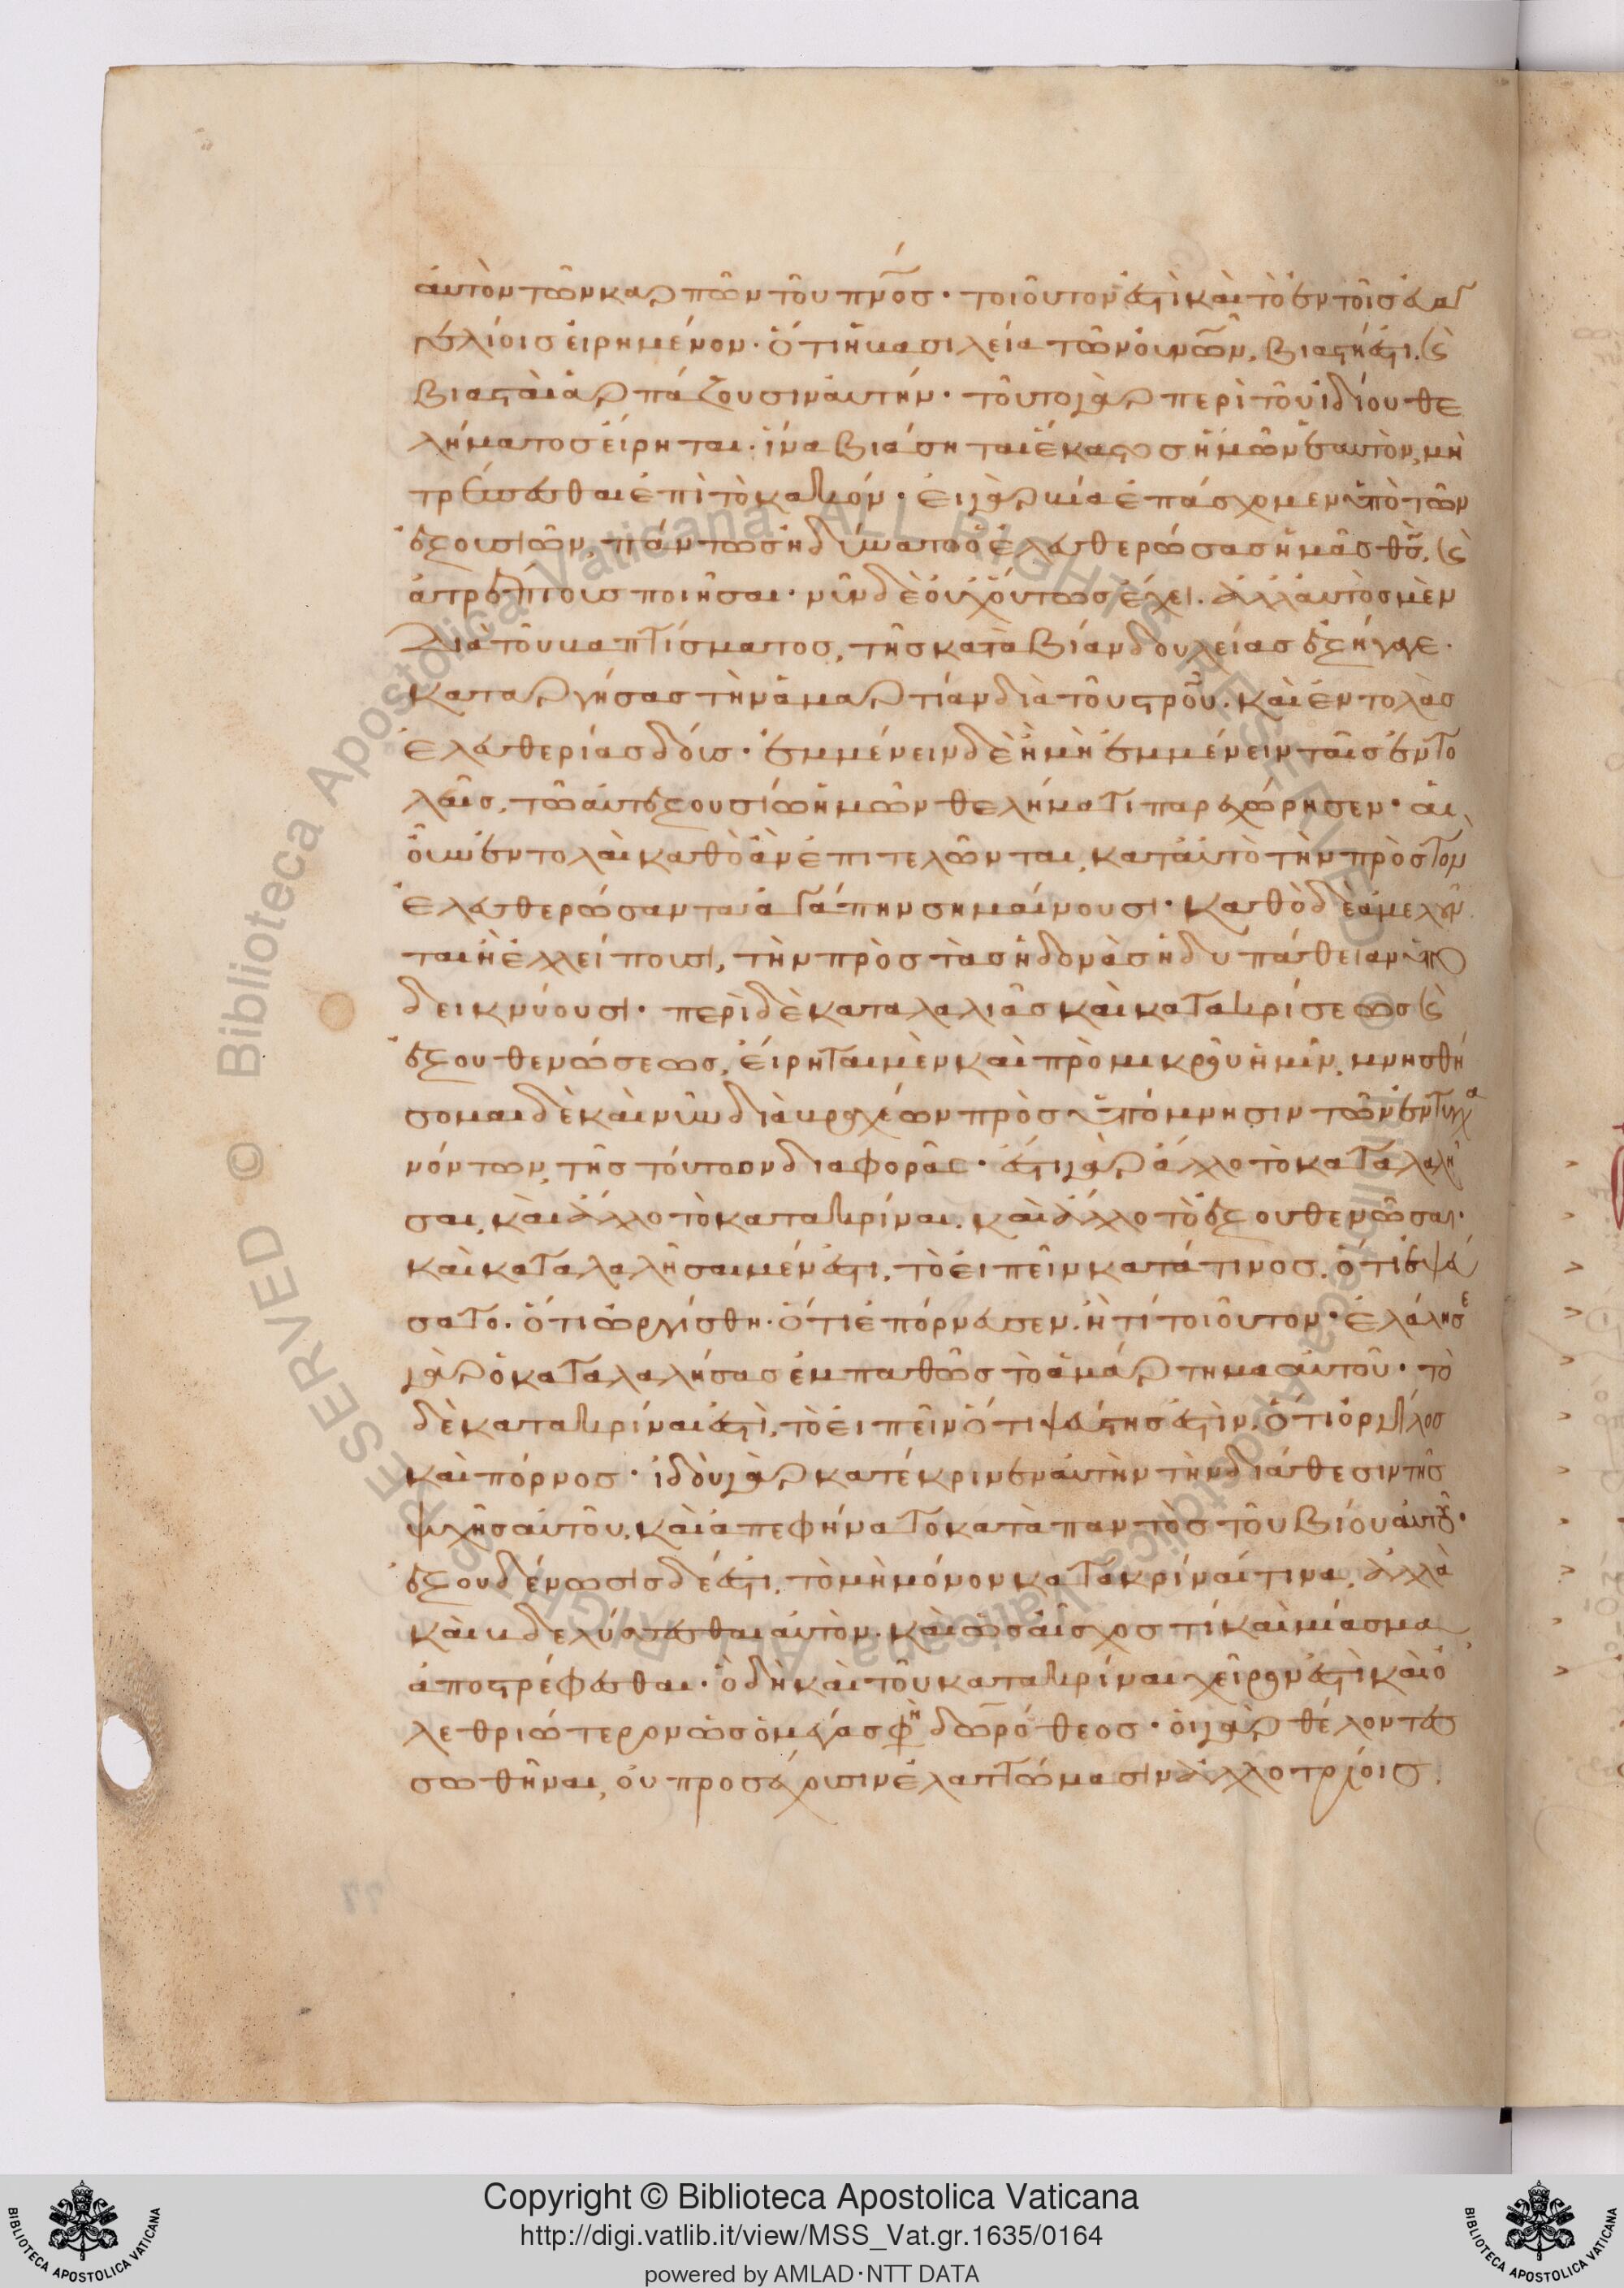 αὐτὸν τῶν καρπῶν τοῦ πνό̅ς· τοιοῦτον ἐστὶ καὶ τὸ ἐν τοῖς εὐαγ
γελίοις εἰρημένον· ὅτι ἡ βασιλεία τῶν οὐνῶ̅ν, βιαστή ἐστι, καὶ
βιασταὶ ἁρπάζουσιν αὐτήν· τοῦτο γὰρ περὶ τοῦ ἰδίου θε
λήματος εἴρηται· ἵνα βιάσηται ἕκαστος ἡμῶν ἑαυτὸν, μὴ
τρέπεσθαι ἐπὶ τὸ κακόν· εἰ γὰρ βία ἐπάσχομεν ὑπὸ τῶν
ἐξουσιῶν, πάντως ἠδύνατο ὁ ἐλευθερώσας ἡμᾶς θς̅, καὶ
ἀτρέπτους ποιῆσαι· νῦν δὲ οὐχ οὕτως ἔχει. ἀλλ' αὐτὸς μὲν
διὰ τοῦ βαπτίσματος, τῆς κατὰ βίαν δουλείας ἐξήγαγε·
καταργήσας τὴν ἁμαρτίαν διὰ τοῦ στρο̅ῦ. καὶ ἐντολὰς
ἐλευθερίας δούς· ἐμμένειν δὲ ἢ μὴ ἐμμένειν ταῖς ἐντο
λαῖς, τῶ αὐτεξουσίω ἡμῶν θελήματι παρεχώρησεν· αἱ
οὖν ἐντολαὶ καθὸ ἂν ἐπιτελῶνται, κατ' αὐτὸ τὴν πρὸς τὸν
ἐλευθερώσαντα ἀγάπην σημαίνουσι· καθὸ δὲ ἀμελοῦν
ται ἢ ἐλλείπουσι, τὴν πρὸς τὰς ἡδονὰς ἡδυπάθειαν ὑπο
δεικνύουσι· περὶ δὲ καταλαλιᾶς καὶ κατακρίσεως καὶ
ἐξουθενώσεως, εἴρηται μὲν καὶ πρὸ μικροῦ ἡμῖν, μνησθή
σομαι δὲ καὶ νῦν διὰ βραχέων πρὸς ὑπόμνησιν τῶν ἐντυγχα
νόντων, τῆς τούτων διαφορᾶς· ἔστι γὰρ ἄλλο τὸ καταλαλῆ
σαι, καὶ ἄλλο τὸ κατακρίναι. καὶ ἄλλο τὸ ἐξουθενῶσαι·
καὶ καταλαλῆσαι μέν ἐστι, τὸ εἰπεῖν κατά τινος, ὅτι ἐψεύ
σατο. ὅτι ὠργίσθη. ὅτι ἐπόρνευσεν. ἤ τι τοιοῦτον· ἐλάλησε
γὰρ ὁ καταλαλήσας ἐμπαθῶς τὸ ἁμάρτημα αὐτοῦ· τὸ
δὲ κατακρίναι ἐστὶ, τὸ εἰπεῖν ὅτι ψεύστης ἐστὶν, ὅτι ὀργίλος
καὶ πόρνος· ἰδοὺ γὰρ κατέκρινεν αὐτὴν τὴν διάθεσιν τῆς
ψυχῆς αὐτοῦ, καὶ ἀπεφήνατο κατὰ παντὸς τοῦ βίου αὐτοῦ·
ἐξουδένωσις δέ ἐστι, τὸ μὴ μόνον κατακρίναί τινα, ἀλλὰ
καὶ βδελύσσεσθαι αὐτὸν. καὶ ὡς αἶσχος τί καὶ μίασμα
ἀποστρέφεσθαι· ὃ δὴ καὶ τοῦ κατακρίναι χεῖρον ἐστὶ καὶ ὀ
λεθριώτερον ὡς ὁ μέγας φη δωρόθεος· οἱ γὰρ θέλοντες
σωθῆναι, οὐ προσέχουσιν ἐλαττώμασιν ἀλλοτρίοις.
Copyright © Biblioteca Apostolica Vaticana
http://digi.vatlib.it/view/MSS_Vat.gr.1635/0164
powered by AMLAD·NTT DATA